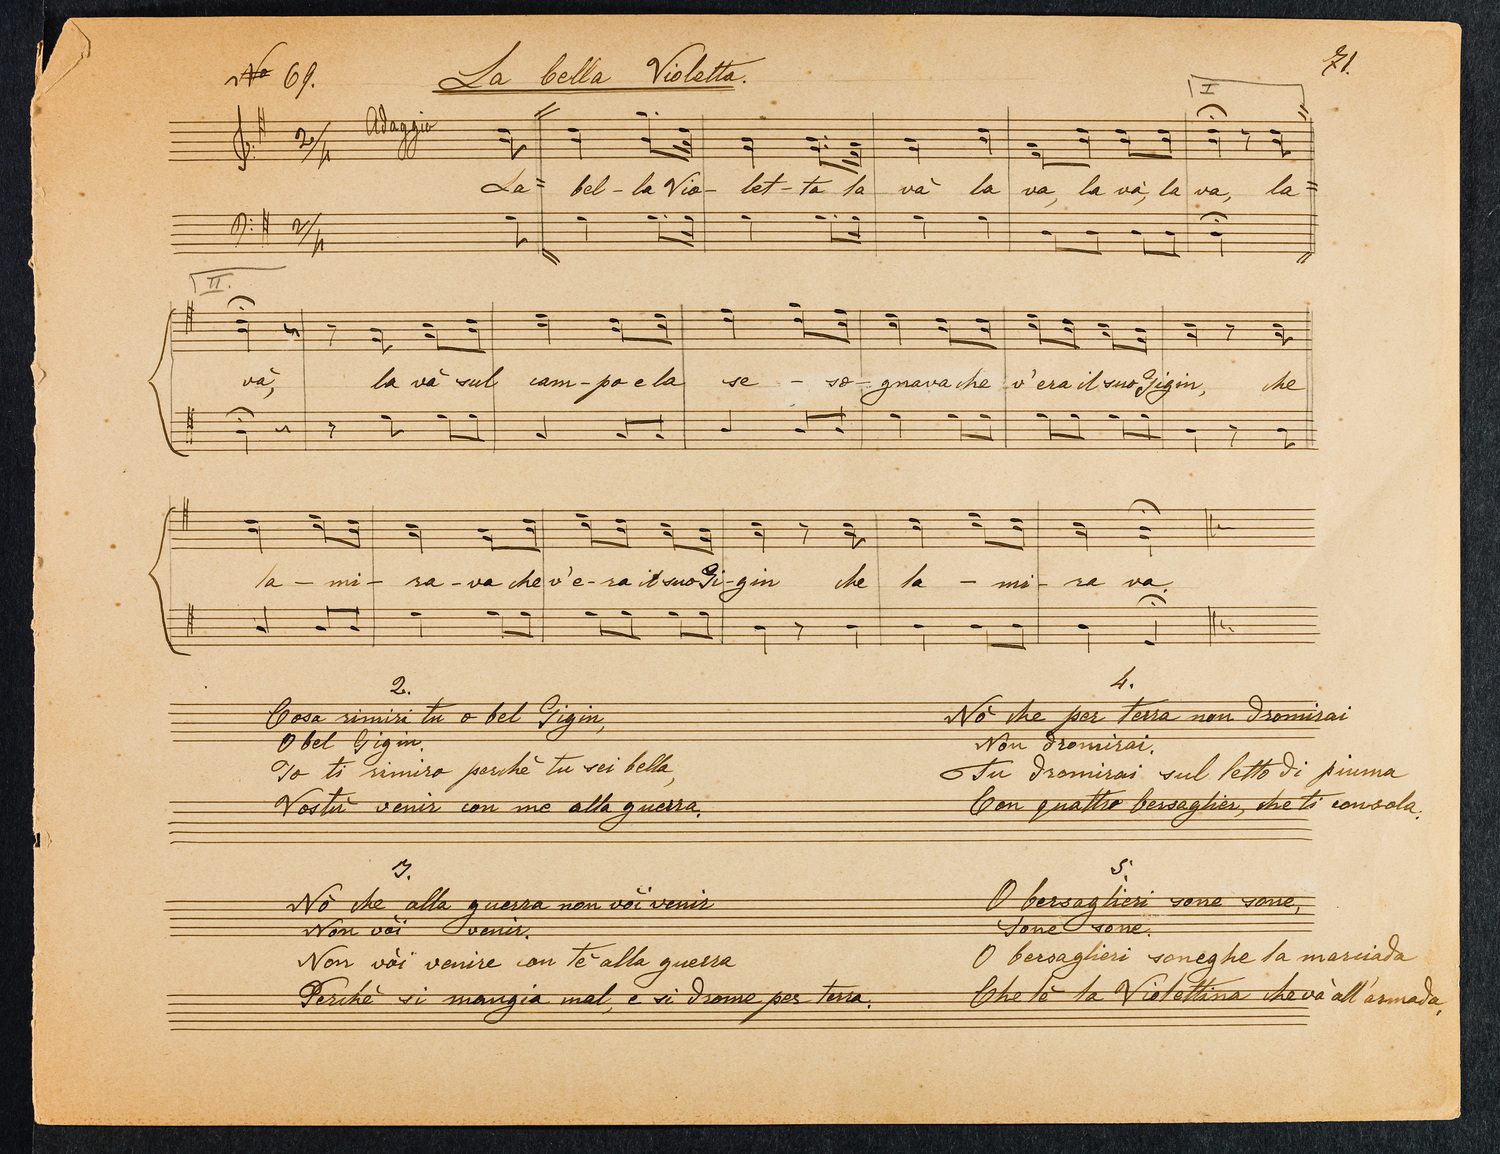 No 69.
La bella Violetta.
71.
I
Adaggio
2/4
La= bel-la Vio-let-ta la và la va, la và, la va, la=
2/4
II.
và, la và sul cam-po e la se-so-gnava che v'era il suo Gigin, che
la-mi-ra-va che v'e-ra il suo Gi-gin che la-mi-ra va.
2.
Cosa rimiri tu o bel Gigin,
O bel Gigin.
Io ti rimiro perchè tu sei bella,
Vostù venir con me alla guerra.
3.
Nò che alla guerra non vòi venir
Non vòi venir.
Non vòi venire con tè alla guerra
Perchè si mangia mal, e si drome per terra.
4.
Nò che per terra non dromirai
Non dromirai.
Tu dromirai sul letto di piuma
Con quattro bersaglier, che ti consola.
5.
O bersaglieri sone sone,
Sone sone.
O bersaglieri soneghe la marciada
Che lè la Violettina che và all'armada,